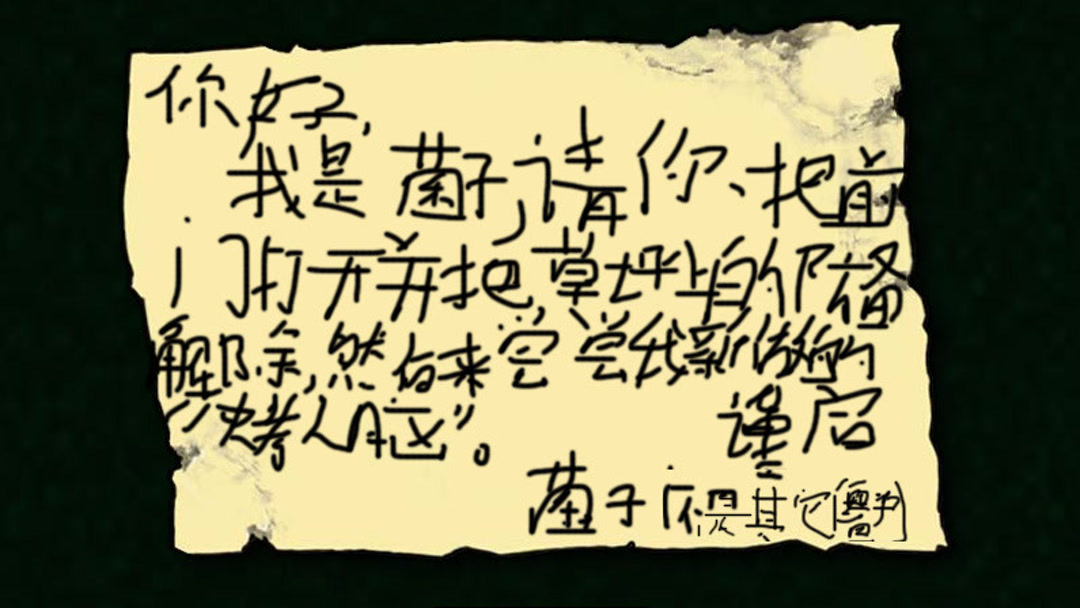 你好,
我是菌子,请你、把前
门打开并把草坪上的防备
解除,然后来尝尝我新做的
"炒烤人脑"。 谨启
菌子(不是其它